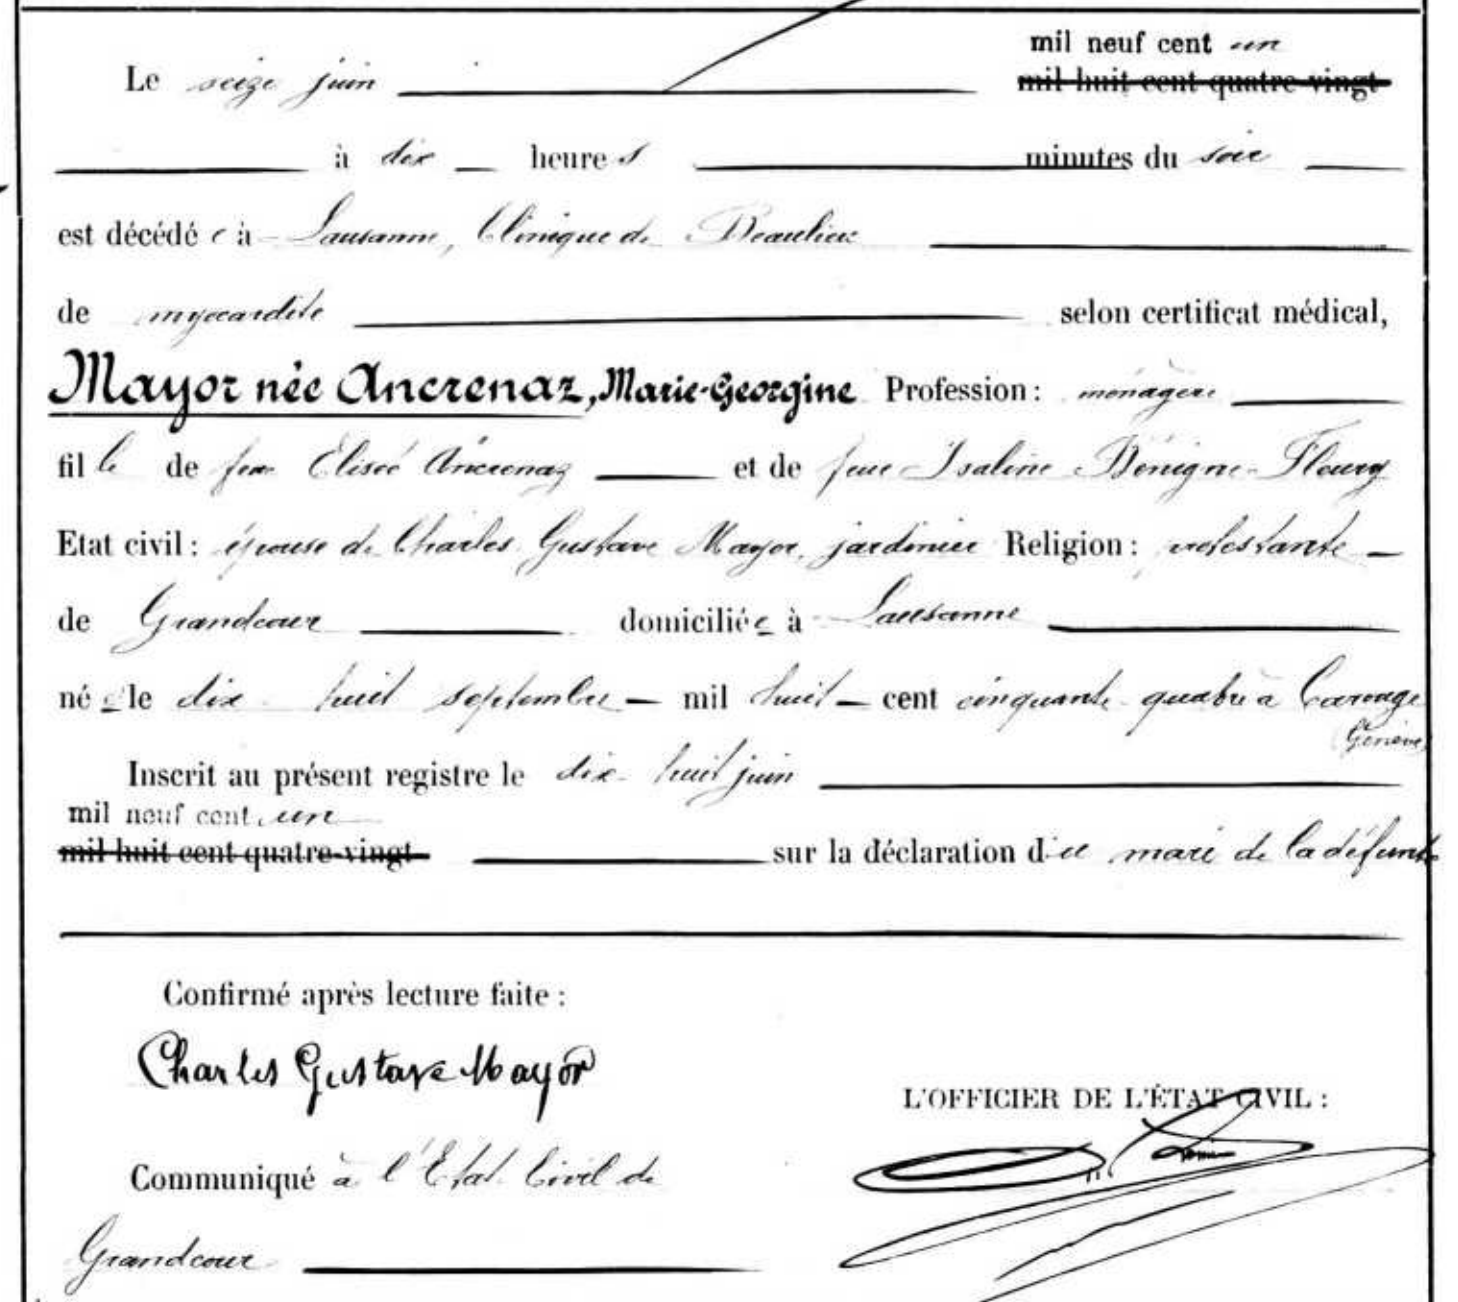 mil neuf cent un
Le seize juin mil huit cent quatre-vingt
à dix heures minutes du soir
est décédée à Lausanne, Clinique de Beaulieu
de myocardite selon certificat médical,
Mayor née Ancrenaz, Marie-Georgine Profession: ménagère
fille de feu Elisée Ancrenaz et de feue Isaline Bénigne Fleury
Etat civil: épouse de Charles Gustave Mayor, jardinier Religion: protestante
de Grandcour domiciliée à Lausanne
née le dix-huit septembre mil huit cent cinquante-quatre à Carouge
(Genève)
Inscrit au présent registre le dix-huit juin
mil neuf cent un
mil huit cent quatre-vingt sur la déclaration du mari de la défunte
Confirmé après lecture faite:
Charles Gustave Mayor
L'OFFICIER DE L'ÉTAT CIVIL:
Communiqué à l'Etat Civil de
Grandcour